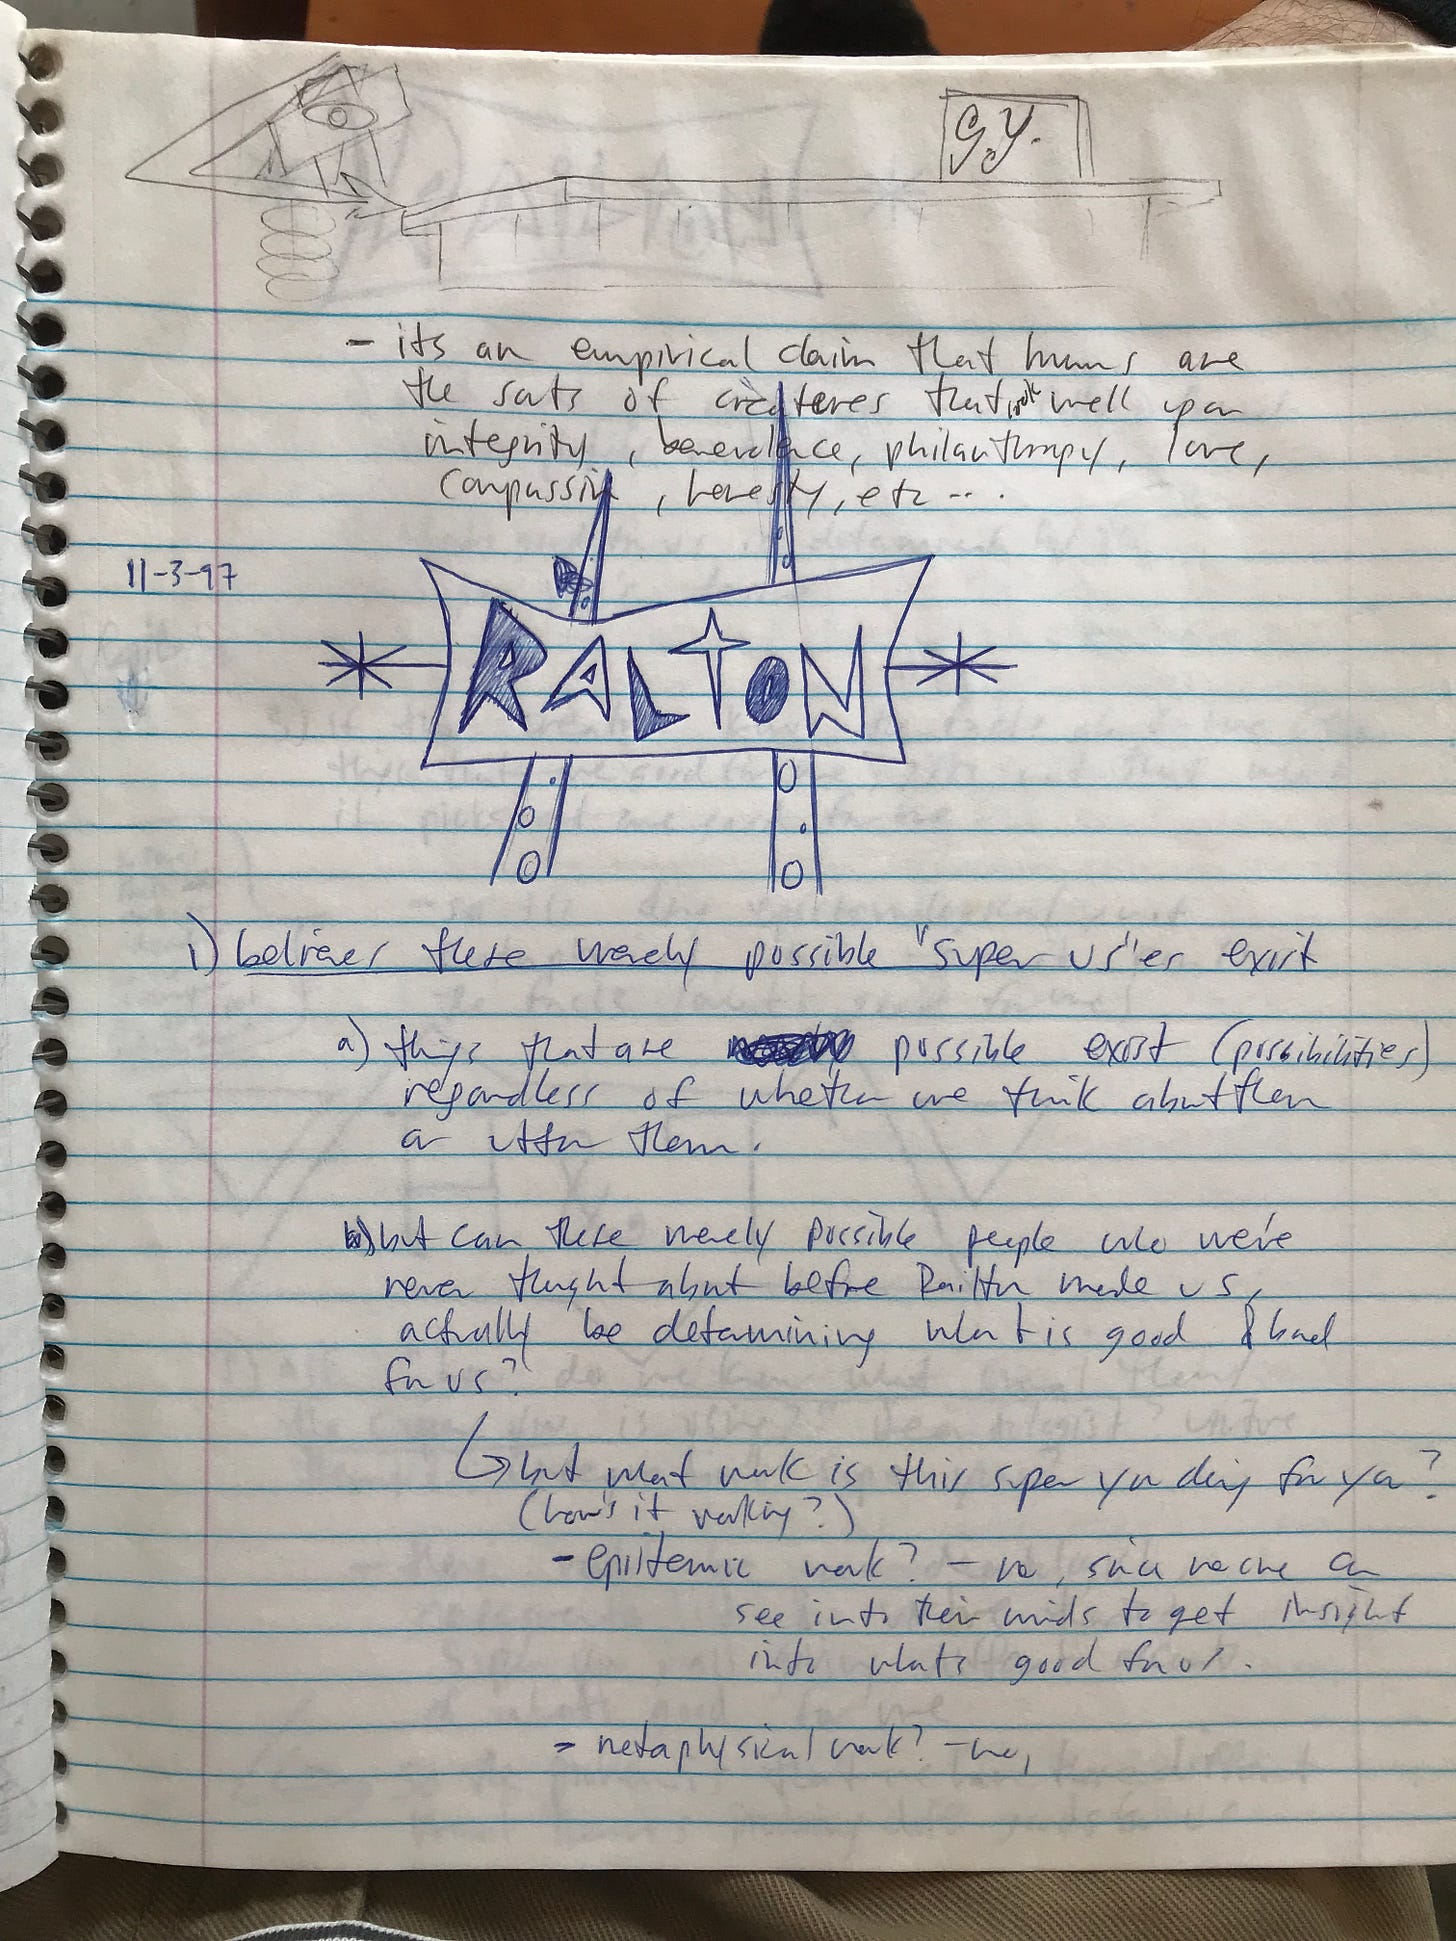 G.Y.
- its an empirical claim that humns are
the sorts of creatures that look well upon
integrity, benevolence, philanthropy, love,
compassion, honesty, etc...
11-3-97
RALTON
1) believes these merely possible "super us"es exist
a) things that are possible exist (possibilities)
regardless of whether we think about them
or utter them.
b) but can these merely possible people who we've
never thought about before Railton made us,
actually be determining what is good & bad
for us?
but what work is this super you doing for you?
(how's it working?)
- epistemic work? - no, since no one can
see into their minds to get insight
into whats good for us.
- metaphysical work? - no,